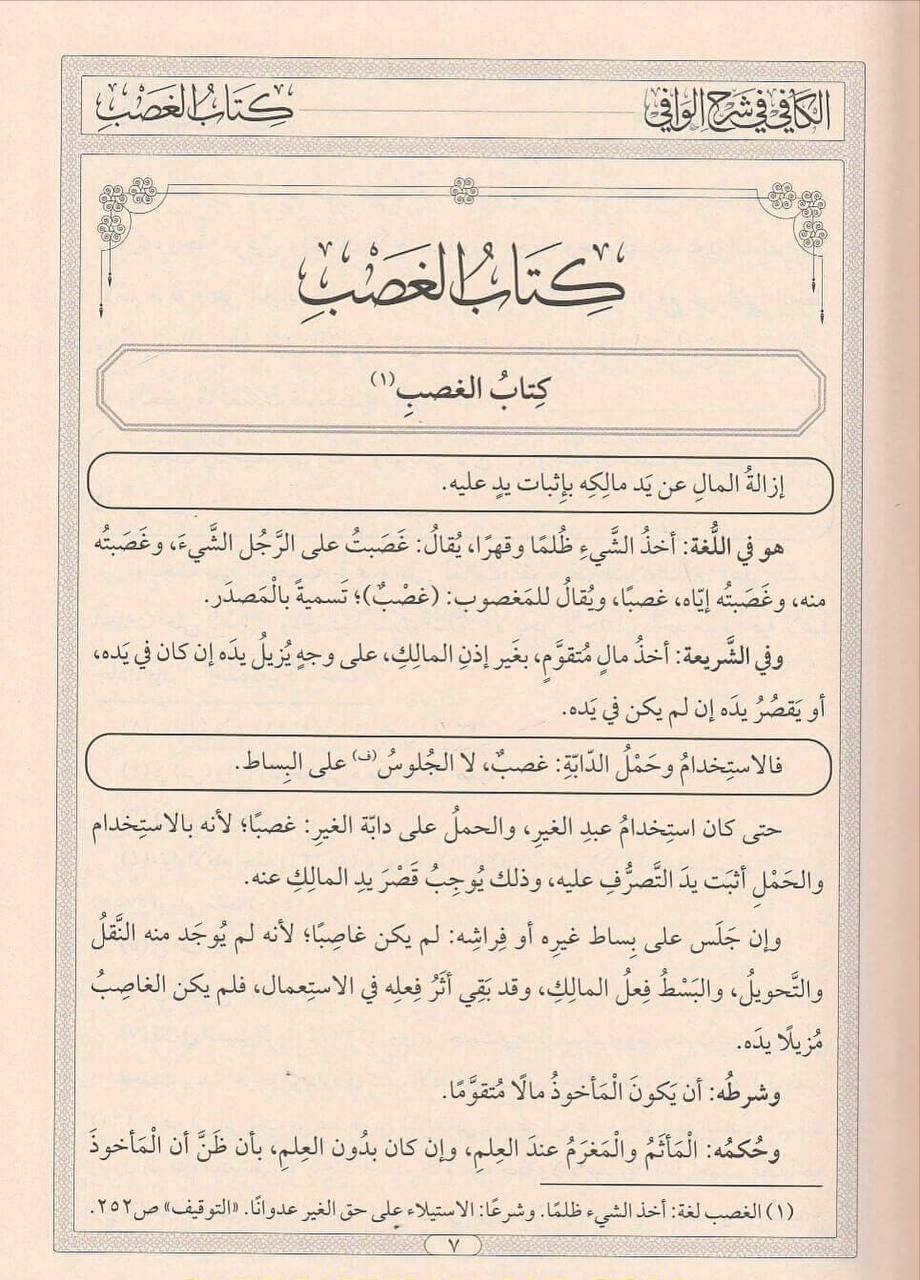 الكافي في شرح الوافي
كِتَابُ الغَصْبِ
كِتَابُ الغَصْبِ
كِتابُ الغصبِ(١)
إزالةُ المالِ عن يَد مالِكِه بإثبات يدٍ عليه.
هو في اللُّغة: أخذُ الشَّيءِ ظُلمًا وقهرًا، يُقالُ: غَصَبتُ على الرَّجُل الشَّيءَ، وغَصَبتُه
منه، وغَصَبتُه إيّاه، غصبًا، ويُقالُ للمَغصوب: (غصْبٌ)؛ تَسميةً بالْمَصدَر.
وفي الشَّريعة: أخذُ مالٍ مُتقوَّمٍ، بغَير إذنِ المالِكِ، على وجهٍ يُزيلُ يدَه إن كان في يَده،
أو يَقصُرُ يدَه إن لم يكن في يَده.
فالاستِخدامُ وحَمْلُ الدّابّةِ: غصبٌ، لا الجُلوسُ(ف) على البِساط.
حتى كان استِخدامُ عبدِ الغيرِ، والحملُ على دابّة الغيرِ: غصبًا؛ لأنه بالاستِخدام
والحَمْلِ أثبَت يدَ التَّصرُّفِ عليه، وذلك يُوجِبُ قَصْرَ يدِ المالكِ عنه.
وإن جَلَس على بِساط غيرِه أو فِراشِه: لم يكن غاصِبًا؛ لأنه لم يُوجَد منه النَّقلُ
والتَّحويلُ، والبَسْطُ فِعلُ المالِكِ، وقد بَقِي أثَرُ فِعلِه في الاستِعمال، فلم يكن الغاصِبُ
مُزيلًا يدَه.
وشرطُه: أن يَكونَ الْمَأخوذُ مالًا مُتقوَّمًا.
وحُكمُه: الْمَأثَمُ والْمَغرَمُ عندَ العِلمِ، وإن كان بدُون العِلمِ، بأن ظَنَّ أن الْمَأخوذَ
(١) الغصب لغة: أخذ الشيء ظلمًا. وشرعًا: الاستيلاء على حق الغير عدوانًا. «التوقيف» ص٢٥٢.
٧